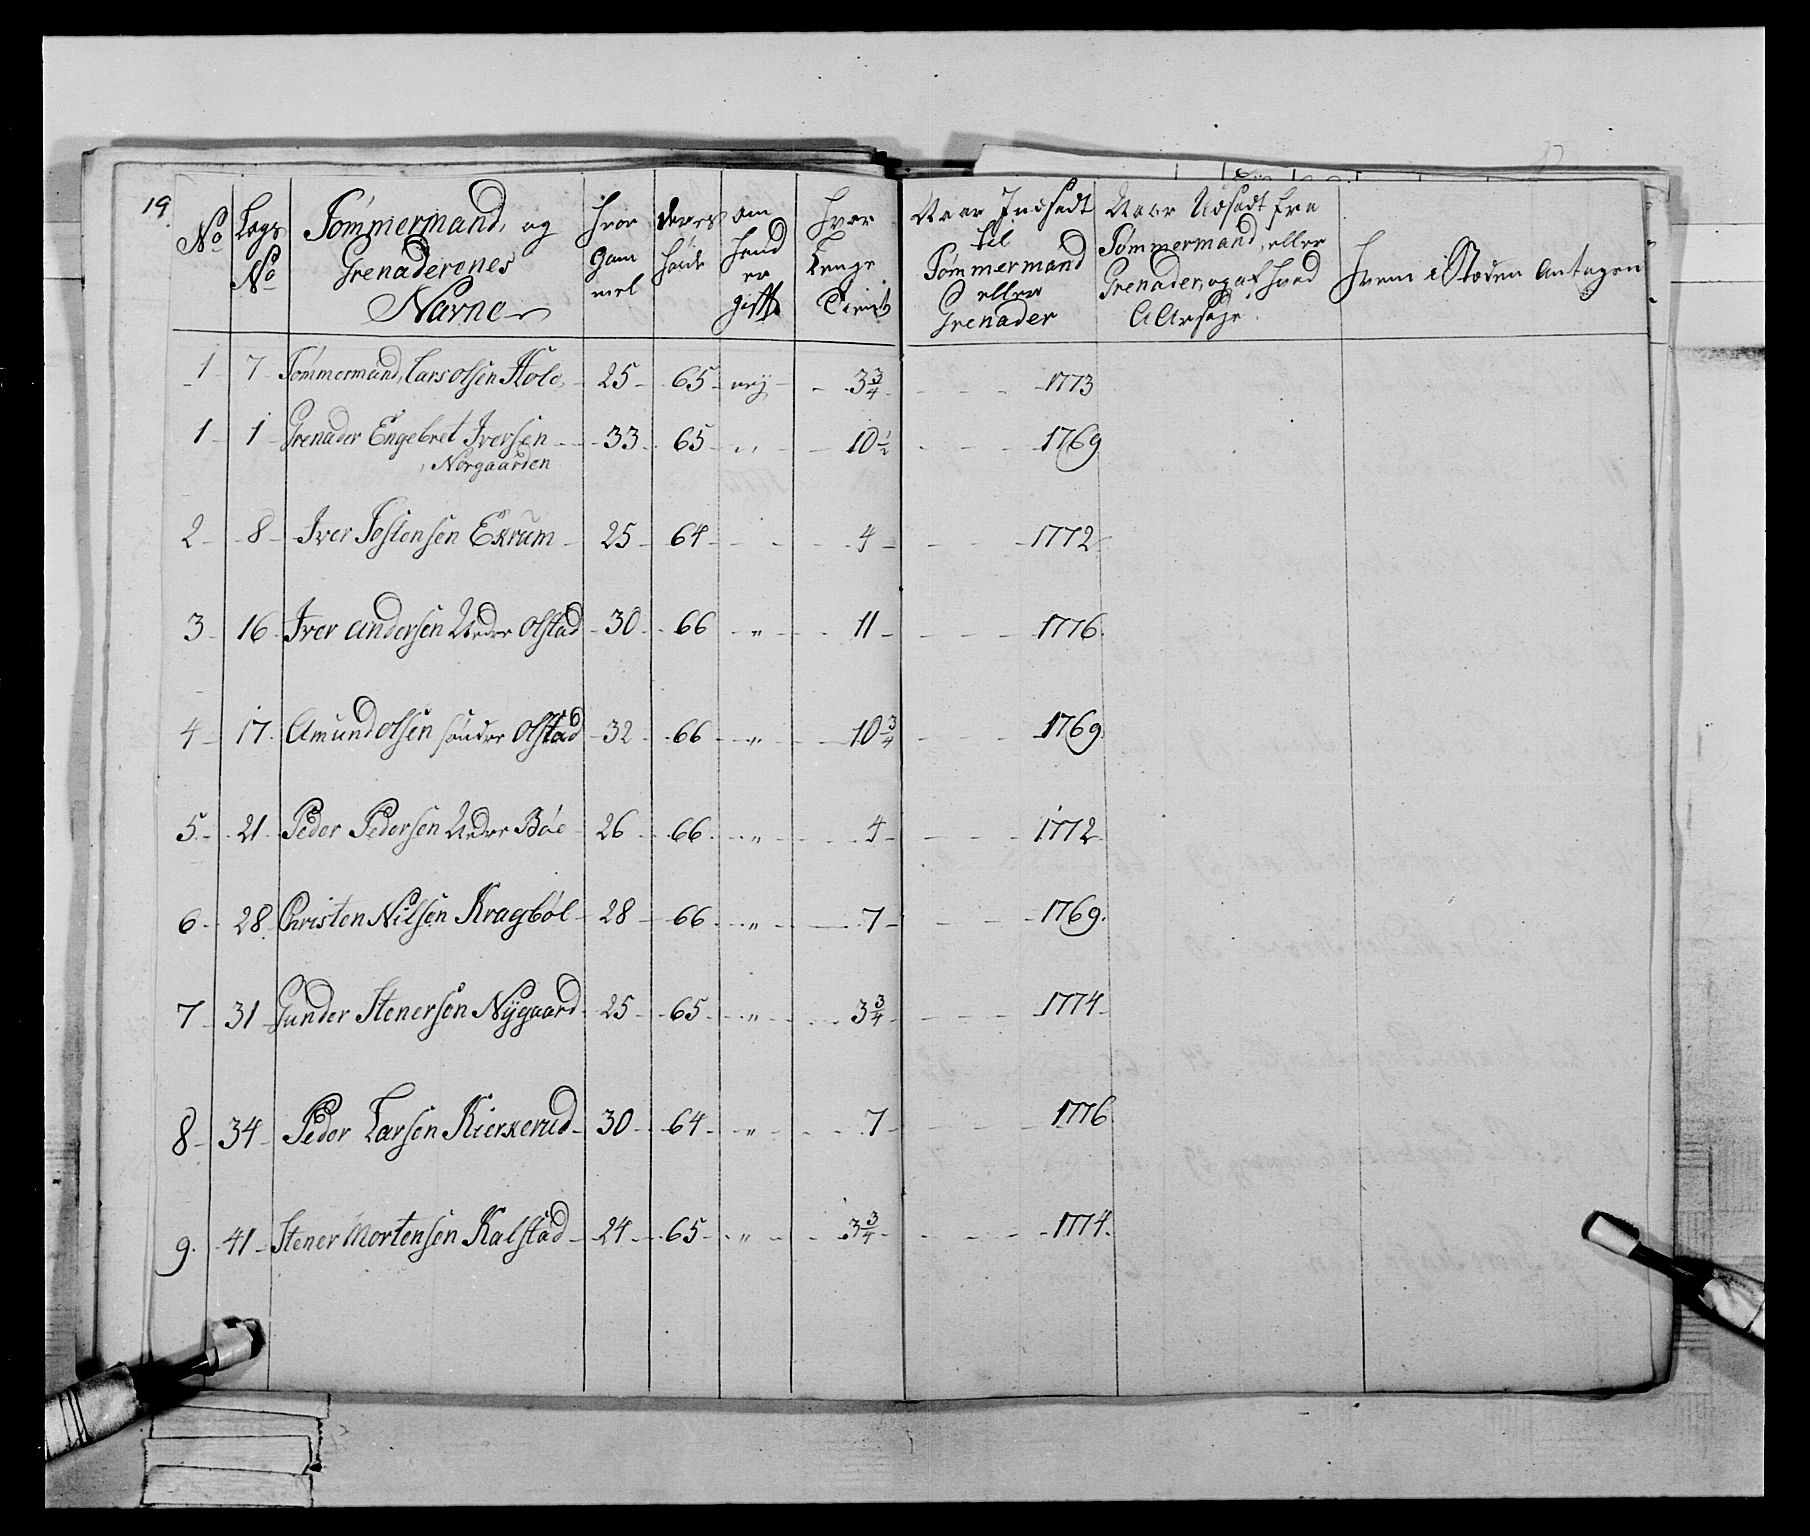 19
No Lægs No Tømmermand, og Grenaderenes Navne Hvor Gammel deres Høide om Hand er gift Hvor Lenge Tient Naar Indsadt til Tømmermand eller Grenader Naar Udsadt fra Tømmermand, eller Grenader, og af hvad Aarsage Hvem i Stæden Antagen
1 7 Tømmermand, Lars Olsen Hole 25 65 nej 3 3/4 1773
1 1 Grenader Engebret Iversen 33 65 " 10 1/2 1769
Norgaarden
2 8 Iver Jostensen Ekrum 25 64 4 1772
3 16 Iver Andersen Nedre Olstad 30 66 " 11 1776
4 17 Amund Olsen søndre Olstad 32 66 " 10 3/4 1769
5 21 Peder Pedersen Nedre Bøe 26 66 " 4 1772
6 28 Christen Nilsen Kragbøl 28 66 " 7 1769
7 31 Gunder Stenersen Nÿgaard 25 65 " 3 3/4 1774
8 34 Peder Larsen Kierkerud 30 64 " 7 1776
9 41 Stener Mortensen Kalstad 24 65 " 3 3/4 1774